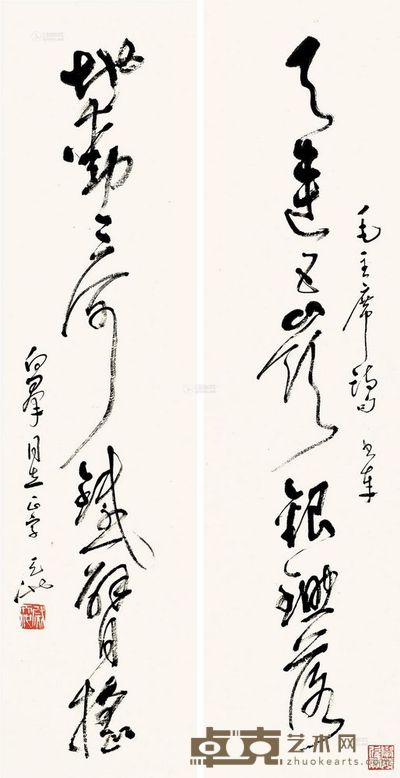 天連五嶺銀鋤落
毛主席詩
地動三河鐵臂搖
向羣同志正字
卓克艺术网
zhuokearts.com